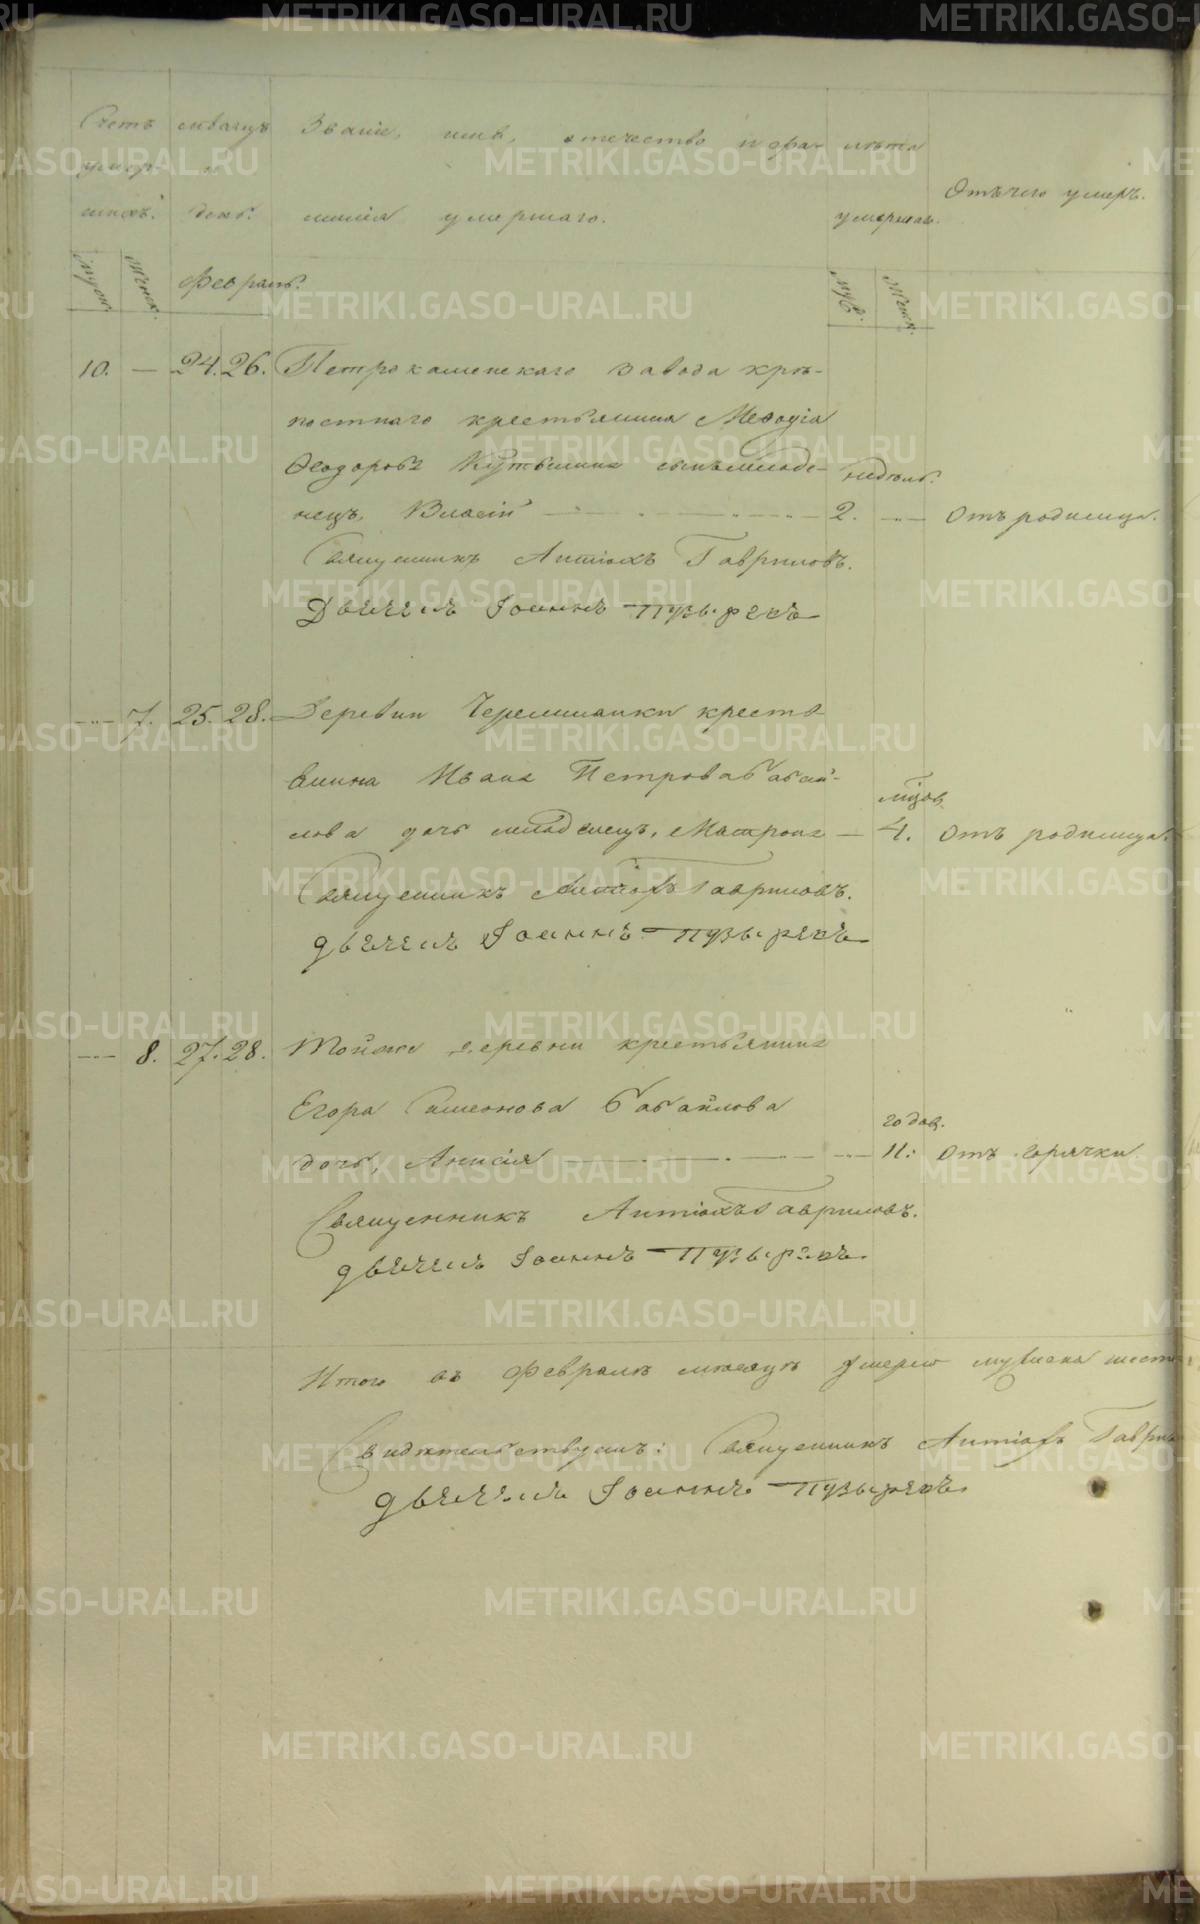 Счетъ мѣсяцъ Званіе, имя, отечество и фа- лѣта
умер- и Отъ чего умеръ.
шихъ. день. милія умершаго. умершаго.
муж. женск. Февраль. муж. женск.
10. — 24. 26. Петрокаменскаго завода крѣ-
постнаго крестьянина Меѳодія
Ѳеодорова сынъ младе- недѣль.
нецъ, Власій 2. — Отъ родимца.
Священникъ Антіохъ Гавриловъ.
Дьячекъ Іоаннъ Пузыревъ
— 7. 25. 28. Деревни Черемшанки кресть-
янина Ивана Петрова Бабай-
мѣсяцов.
лова дочь младенецъ, Матрона — 4. Отъ родимца.
Священникъ Антіохъ Гавриловъ.
Дьячекъ Іоаннъ Пузыревъ
— 8. 27. 28. Той же деревни крестьянина
Егора Симеонова Бабайлова
годов.
дочь, Анисія — 11. Отъ горячки.
Священникъ Антіохъ Гавриловъ.
Дьячекъ Іоаннъ Пузыревъ.
Итого въ Февралѣ мѣсяцѣ умерло мужеска
Свидѣтельствуемъ: Священникъ Антіохъ Гаври
Дьячекъ Іоаннъ Пузыревъ.
METRIKI.GASO-URAL.RU